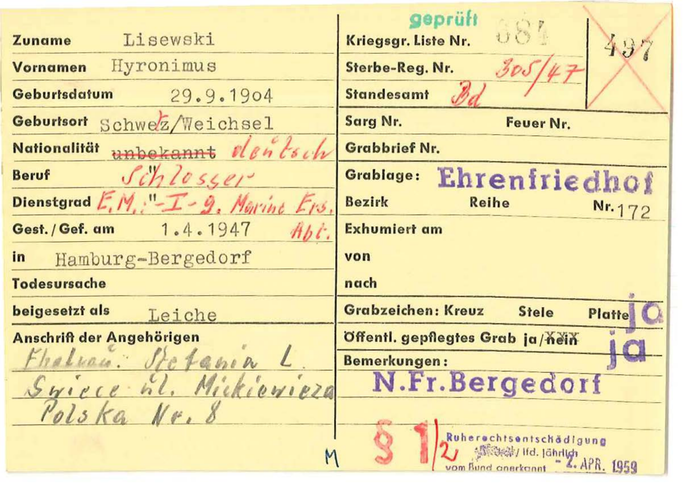 geprüft
Zuname Lisewski
Vornamen Hyronimus
Geburtsdatum 29.9.1904
Geburtsort Schwetz/Weichsel
Nationalität unbekannt deutsch
Beruf " Schlosser
Dienstgrad E.M. "-I-g. Marine Ers. Abt.
Gest./Gef. am 1.4.1947
in Hamburg-Bergedorf
Todesursache
beigesetzt als Leiche
Anschrift der Angehörigen
Ehefrau: Stefania L.
Swiece ul. Mickiewicza
Polska Nr. 8
Kriegsgr. Liste Nr. 684
497
Sterbe-Reg. Nr. 305/47
Standesamt Bd
Sarg Nr. Feuer Nr.
Grabbrief Nr.
Grablage: Ehrenfriedhof
Bezirk Reihe Nr. 172
Exhumiert am
von
nach
Grabzeichen: Kreuz Stele Platte ja
Öffentl. gepflegtes Grab ja/nein ja
Bemerkungen:
N.Fr.Bergedorf
§ 1/2
Ruherechtsentschädigung
/ lfd. jährlich
vom Bund anerkannt - 2. APR. 1959
M